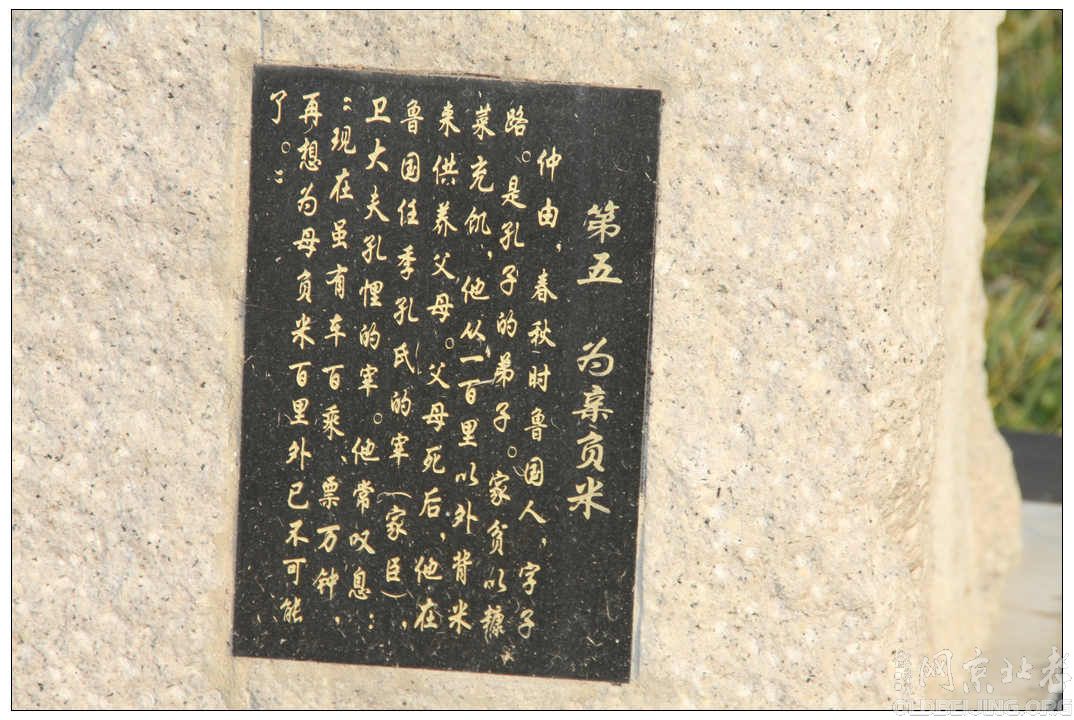 第五 为亲负米
仲由，春秋时鲁国人，字子
路。是孔子的弟子。家贫以糠
菜充饥，他从一百里以外背米
来供养父母。父母死后，他在
鲁国任季孔氏的宰（家臣），
卫大夫孔悝的宰。他常叹息：
“现在虽有车百乘、票万钟，
再想为母负米百里外已不可能
了。”
老北京网
OLDBEIJING.ORG